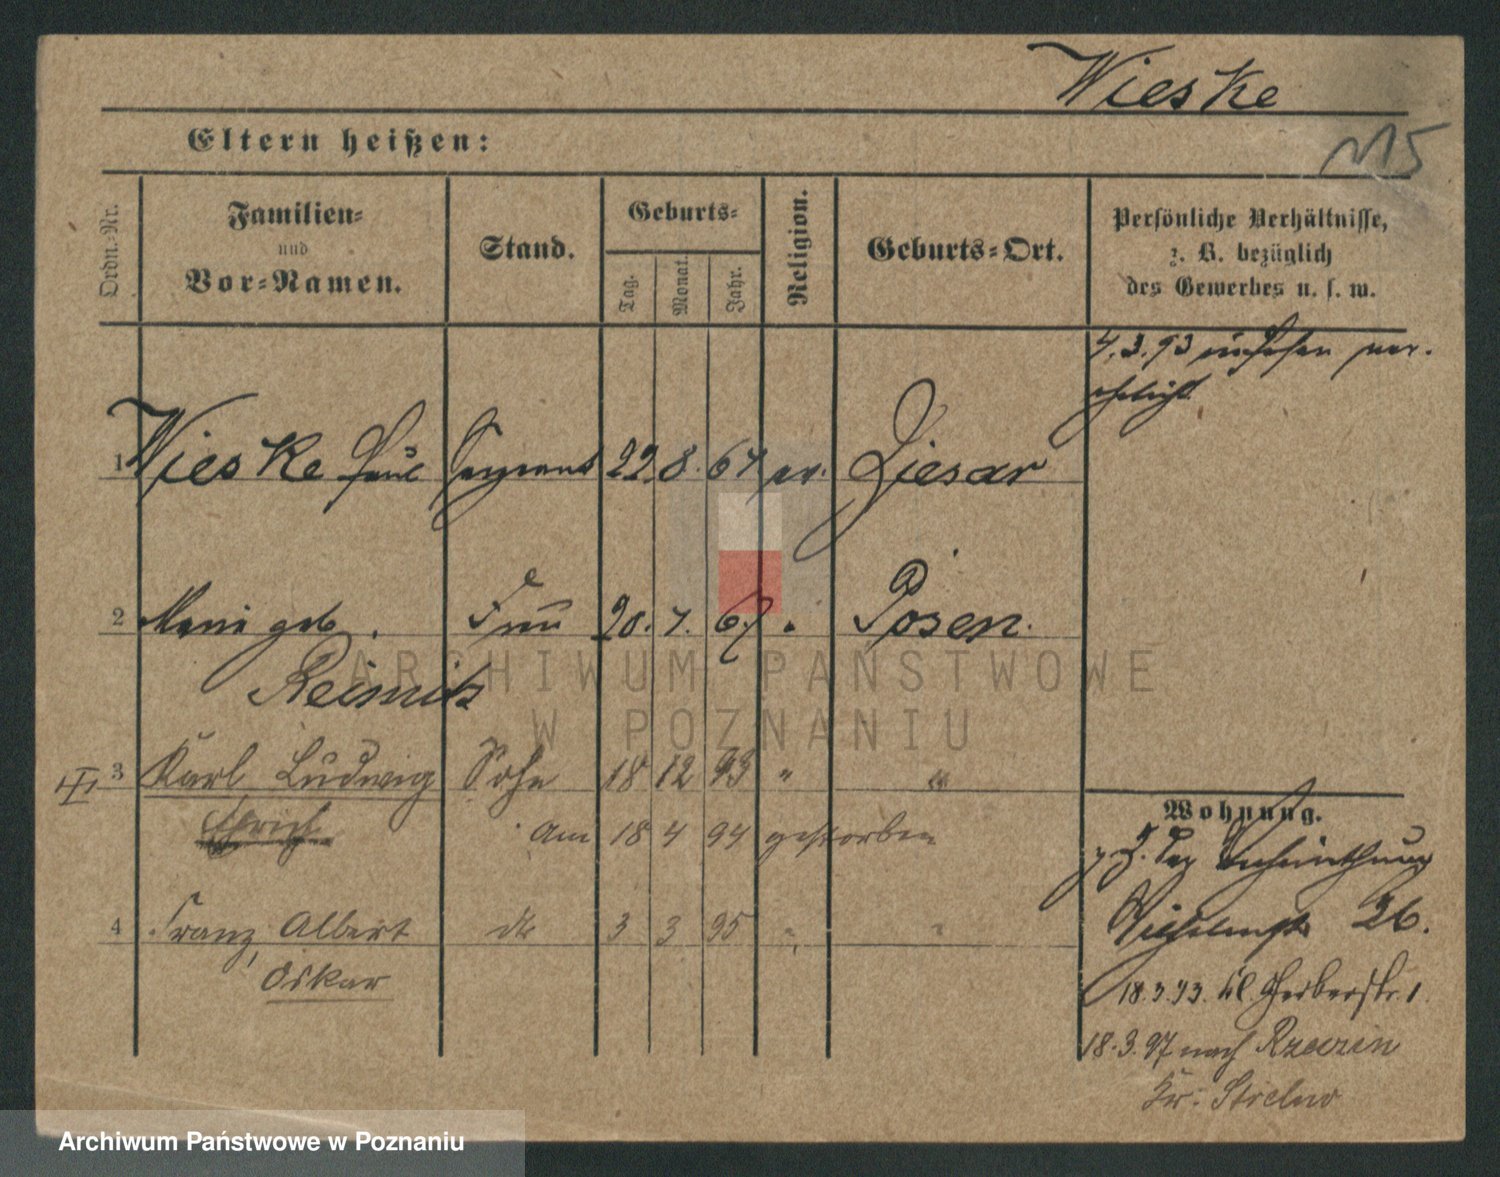 Wieske
115
Eltern heißen:
Ordn.-Nr.
Familien-
und
Vor-Namen.
Stand.
Geburts-
Tag.
Monat.
Jahr.
Religion.
Geburts-Ort.
Persönliche Verhältnisse,
z. B. bezüglich
des Gewerbes u. s. w.
4.3.93 in Posen ver-
ehelicht
1 Wieske Paul Sergeant 22. 8. 67 ev. Ziesar
2 Marie geb. Frau 20. 7. 67 " Posen.
Reisnitz
3 Karl Ludwig Sohn 18 12 93 " "
Am 18 4 94 gestorben
4 Franz, Albert dto 3 3 95 " "
Oskar
Wohnung.
z. Z. der Verheirathung
Wilhelmstr 26.
18.3.93. kl. Gerberstr. 1
18.3.97 nach Rzezin
Kr. Strelno
ARCHIWUM PAŃSTWOWE
W POZNANIU
Archiwum Państwowe w Poznaniu